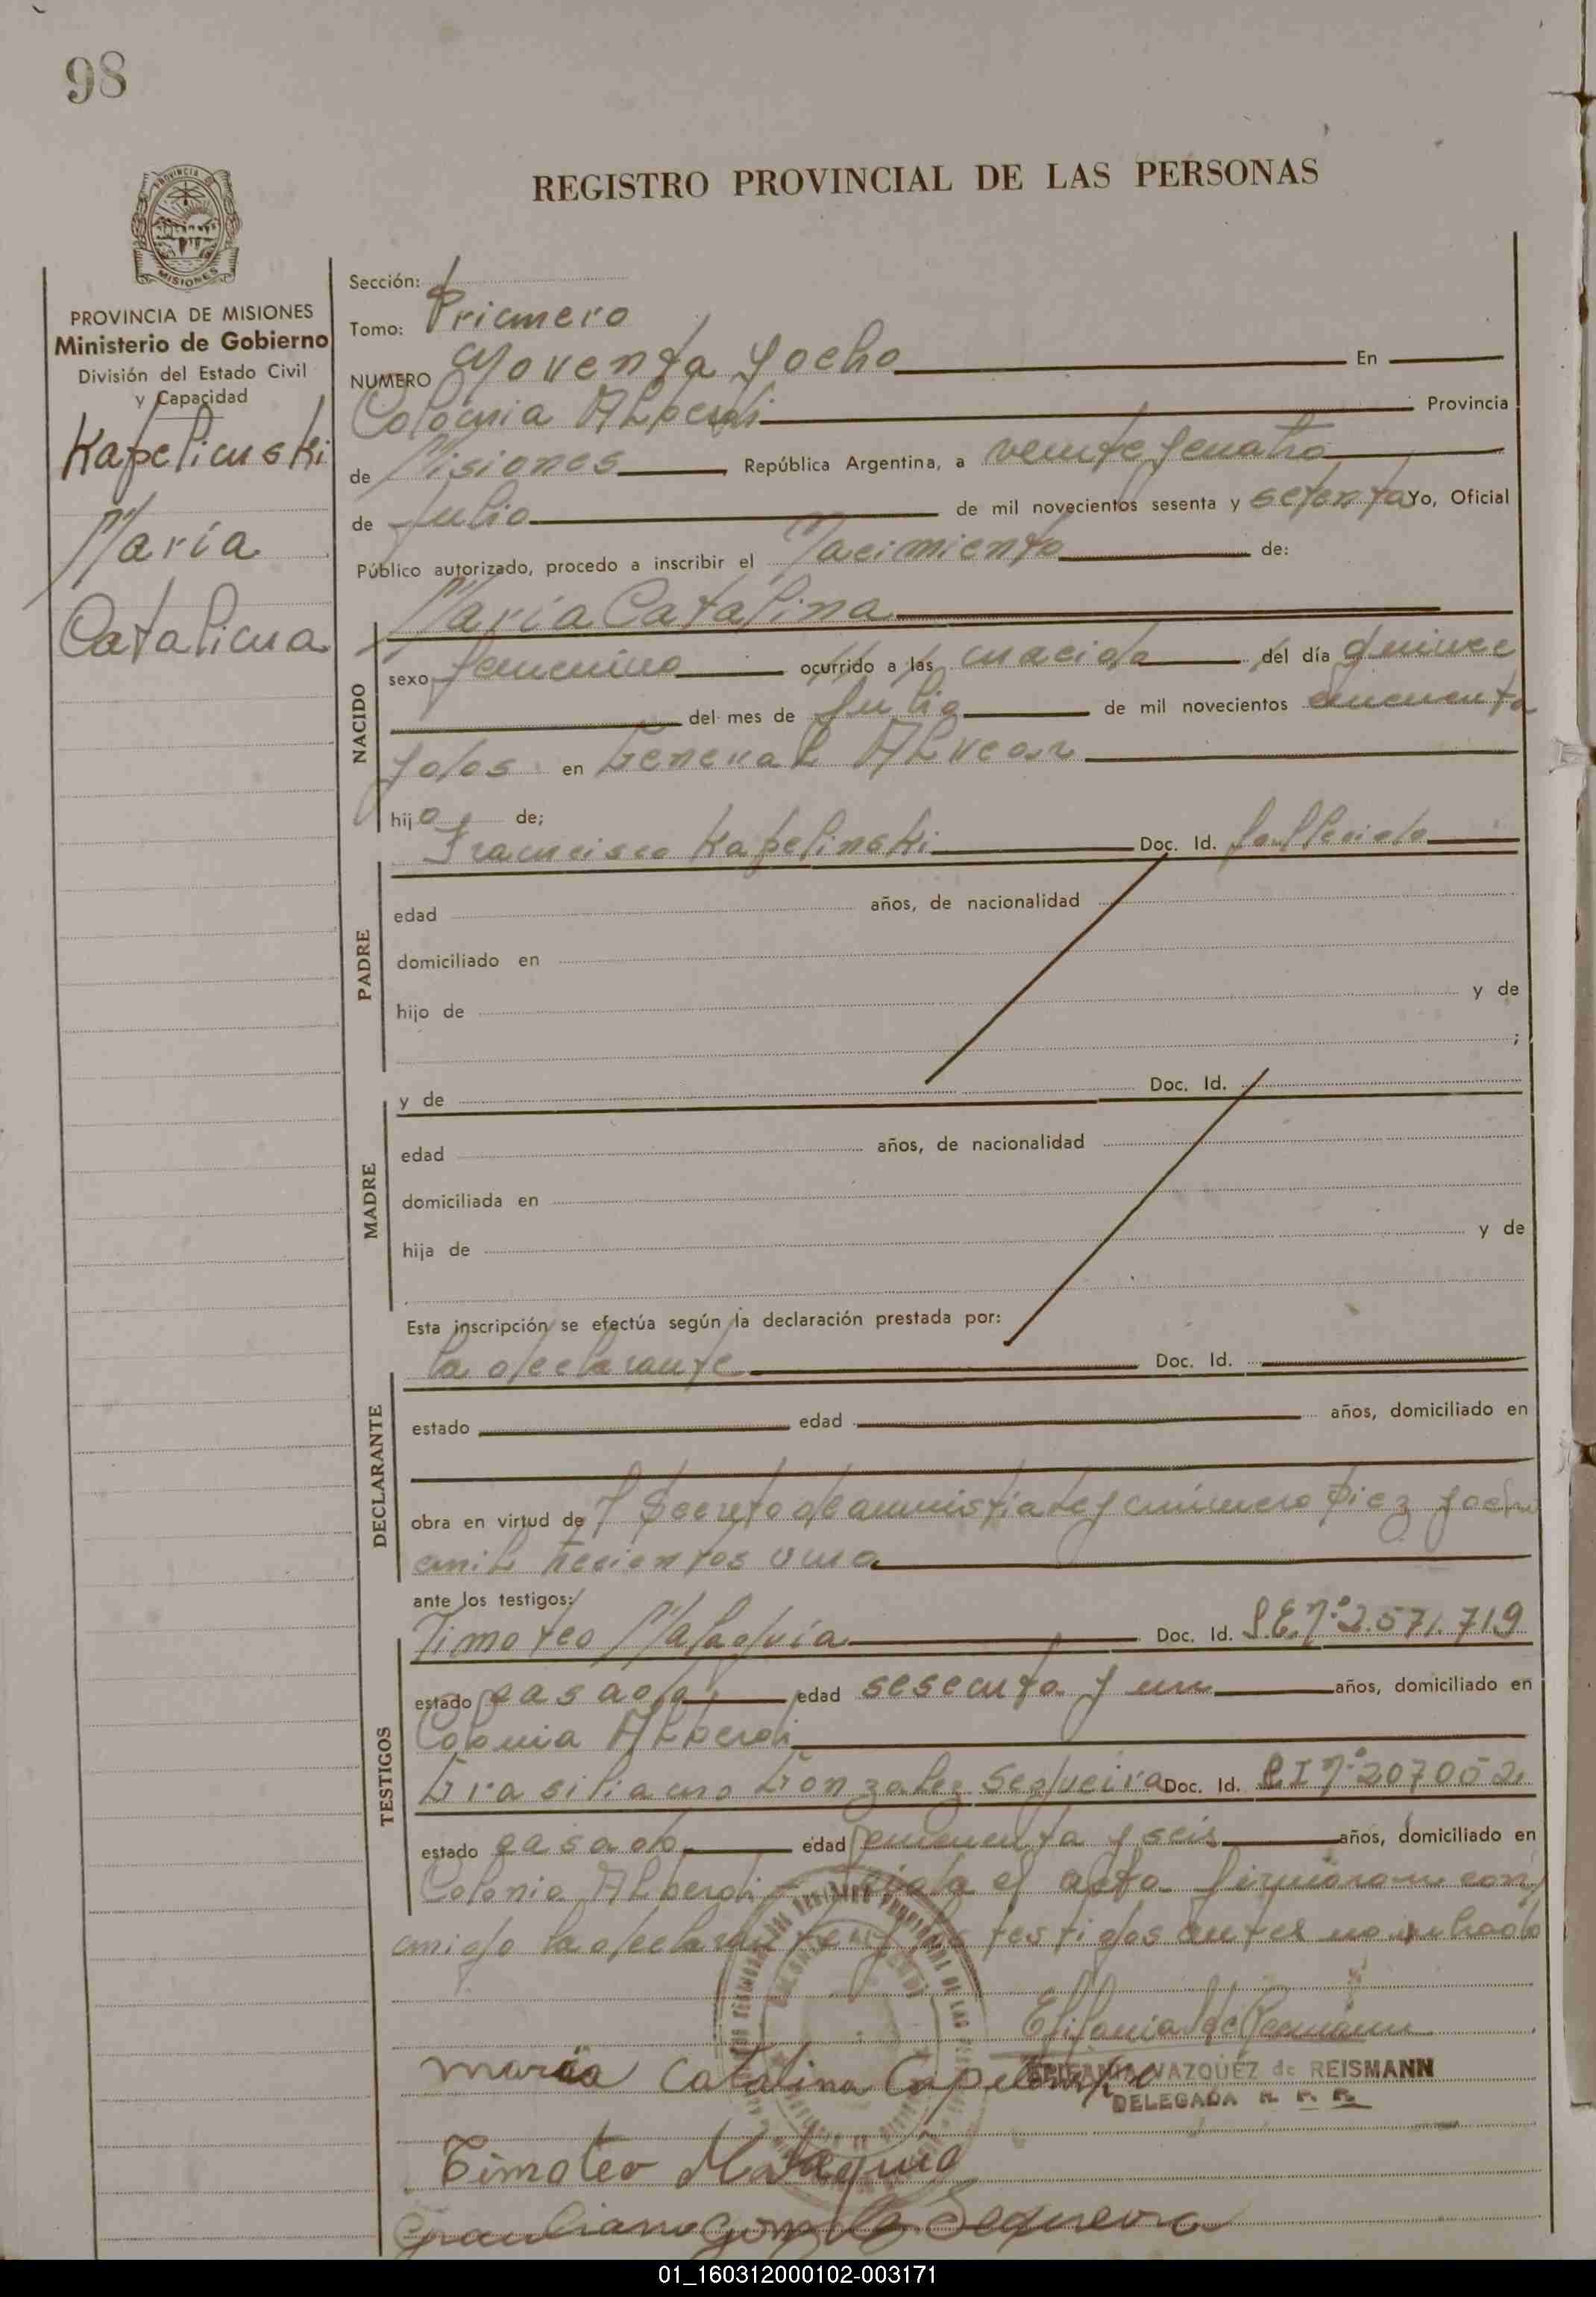 98
PROVINCIA DE
MISIONES
REGISTRO PROVINCIAL DE LAS PERSONAS
PROVINCIA DE MISIONES
Ministerio de Gobierno
División del Estado Civil
y Capacidad
Kapelinski
María
Catalina
Sección:
Tomo: Primero
NUMERO Noventa y ocho En
Colonia Alberdi Provincia
de Misiones República Argentina, a veinte y cuatro
de Julio de mil novecientos sesenta y setenta Yo, Oficial
Público autorizado, procedo a inscribir el Nacimiento de:
María Catalina
NACIDO
sexo femenino ocurrido a las nacida del día quince
del mes de Julio de mil novecientos cincuenta
y dos en General Alvear
hija de;
Francisco Kapelinski Doc. Id. fallecido
PADRE
edad años, de nacionalidad
domiciliado en
hijo de y de
;
y de Doc. Id.
MADRE
edad años, de nacionalidad
domiciliada en
hija de y de
Esta inscripción se efectúa según la declaración prestada por:
la declarante Doc. Id.
DECLARANTE
estado edad años, domiciliado en
obra en virtud de Decreto de amnistia ley número Diez y ocho
mil trecientos uno
ante los testigos:
TESTIGOS
Timoteo Malaquía Doc. Id. L.E.Nº 2.571.719
estado casado edad sesenta y un años, domiciliado en
Colonia Alberdi
Grasiliano Gonzalez Sequeira Doc. Id. C I Nº 207052
estado casado edad cincuenta y seis años, domiciliado en
Colonia Alberdi el acta firmaron con
migo la declarante y los testigos antes nombrado
EPIFANIA VAZQUEZ de REISMANN
DELEGADA R. P. P.
maria Catalina
Timoteo Malaquia
Gonzalez Sequeira
01_160312000102-003171